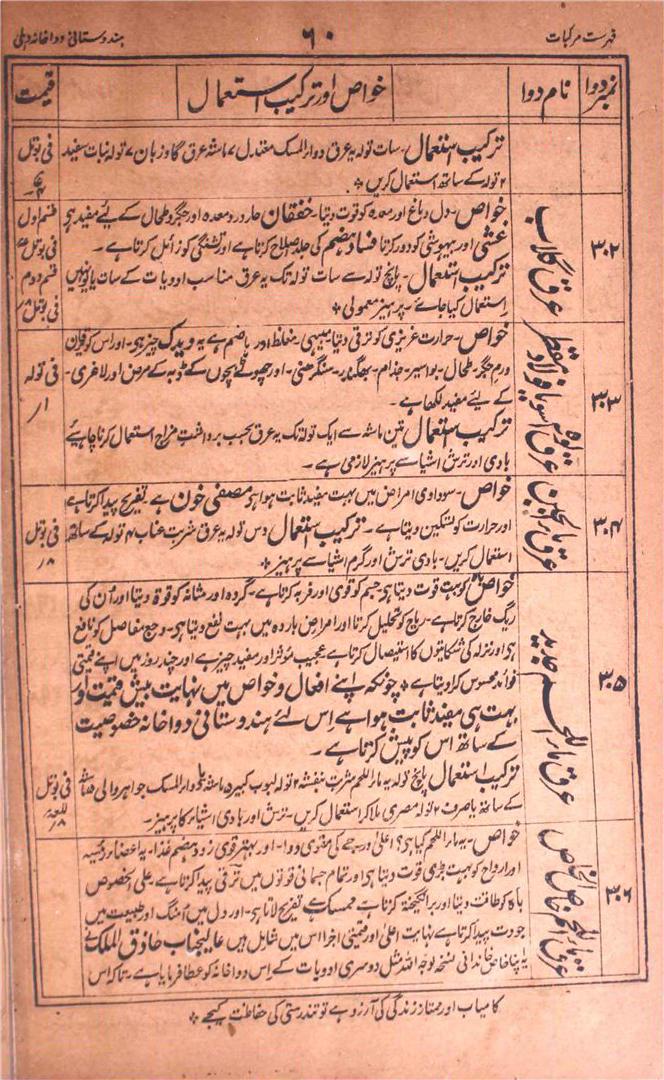 فہرست مرکبات
۶۰
ہندوستانی دواخانہ دہلی
نمبر دوا
نام دوا
خواص اور ترکیب استعمال
قیمت
ترکیب استعمال۔ سات تولہ یہ عرق دواء المسک معتدل ۷ ماشہ عرق گاؤزبان ۷ تولہ نبات سفید
۲ تولہ کے ساتھ استعمال کریں ۔
فی بوتل
۳۰۲
عرق گلاب
خواص۔ دل و دماغ اور معدہ کو قوت دیتا۔ خفقان حار درد معدہ اور جگر و طحال کے لیئے مفید ہے
غشی اور بیہوشی کو دور کرتا فساد ہضم کی جلد اصلاح کرتا ہے اور تشنگی کو زائل کرتا ہے۔
ترکیب استعمال۔ پانچ تولہ سے سات تولہ تک یہ عرق مناسب ادویات کے سات یا یونہیں
استعمال کیا جائے۔ پرہیز معمولی ۔
قسم اول
فی بوتل
قسم دوم
فی بوتل ۸/
۳۰۳
خواص۔ حرارت غریزی کو ترقی دیتا مبہی۔ مغلظ اور ہاضم ہے یہ ویدک چیز ہے۔ اور اس کو
ورم جگر۔ طحال۔ بواسیر۔ جذام۔ بھگندر۔ سنگرہنی۔ اور چھوٹے بچوں کے ڈبہ کے مرض اور لاغری۔
کے لیئے مفید لکھا ہے۔
ترکیب استعمال تین ماشہ سے ایک تولہ تک یہ عرق بحسب برداشت مزاج استعمال کرنا چاہیئے
بادی اور ترش اشیا سے پرہیز لازمی ہے۔
فی تولہ
۱/
۳۰۴
خواص۔ سوداوی امراض میں بہت مفید ثابت ہوا ہے مصفی خون ہے تفریح پیدا کرتا ہے
اور حرارت کو تسکین دیتا ہے۔ ترکیب استعمال دس تولہ یہ عرق شربت عناب ۴ تولہ کے ساتھ
استعمال کریں۔ بادی ترش اور گرم اشیا سے پرہیز ۔
فی بوتل
۸/
۳۰۵
عرق ماء اللحم جدید
خواص باہ کو بہت قوت دیتا ہے جسم کو قوی اور فربہ کرتا ہے۔ گردہ اور مثانہ کو قوت دیتا اور اُن کی
ریگ خارج کرتا ہے۔ ریاح کو تحلیل کرتا اور امراض باردہ میں بہت نفع دیتا ہے۔ وجع مفاصل کو نافع
ہے اور نزلہ کی شکایتوں کا استیصال کرتا ہے عجیب موثر اور مفید چیز ہے اور چند روز میں اپنے قیمتی
فوائد محسوس کرا دیتا ہے ۔ چونکہ اپنے افعال و خواص میں نہایت بیش قیمت اور
بہت ہی مفید ثابت ہوا ہے اِس لئے ہندوستانی دواخانہ خصوصیت
کے ساتھ اس کو پیش کرتا ہے۔
ترکیب استعمال پانچ تولہ یہ ماء اللحم شربت بنفشہ ۲ تولہ لبوب کبیر ۵ ماشہ یا دواء المسک جواہر والی ۵ ماشہ
کے ساتھ یا صرف ۲ تولہ مصری ملا کر استعمال کریں۔ ترش اور بادی اشیاء کا پرہیز۔
فی بوتل
۳۰۶
خواص۔ یہ ماء اللحم کیا ہے؟ اعلیٰ درجے کی مقوی دوا۔ اور بہترین قوی زود ہضم غذا۔ یہ اعضاء رئیسہ
اور ارواح کو بہت بڑی قوت دیتا ہے اور تمام جسمانی قوتوں میں ترقی پیدا کرتا ہے۔ علی الخصوص
باہ کو طاقت دیتا اور برانگیختہ کرتا ہے ممسک ہے تفریح لاتا ہے۔ اور دل میں اُمنگ اور طبیعت میں
جودت پیدا کرتا ہے نہایت اعلیٰ اور قیمتی اجزا اس میں شامل ہیں عالیجناب حاذق الملک نے
یہ اپنا خاص خاندانی نسخہ لوجہ اللہ مثل دوسری ادویات کے اِس دواخانہ کو عطا فرمایا ہے۔ تاکہ اس
کامیاب اور ممتاز زندگی کی آرزو ہے تو تندرستی کی حفاظت کیجے ۔